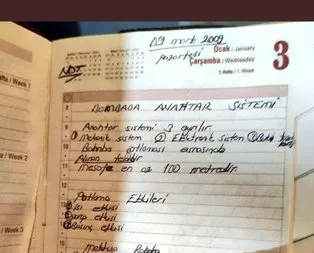 09 mart 2009
pazartesi
NOT
Ocak / January
Çarşamba / Wednesday
3
1. Hafta / 1. Week
afta / Week 1
BOMBADA ANAHTAR SİSTEMİ
Anahtar sistemi 3 ayrılır.
① Mekanik sistem ② Elektronik sistem ③
Bomba patlaması esnasında
Alınan tedbir
Mesafe en az 100 metredir.
a / Week 2
Patlama Etkileri
① ısı etkisi
② etkisi
③ Basınç etkisi
Week 3
Mektup Bomba